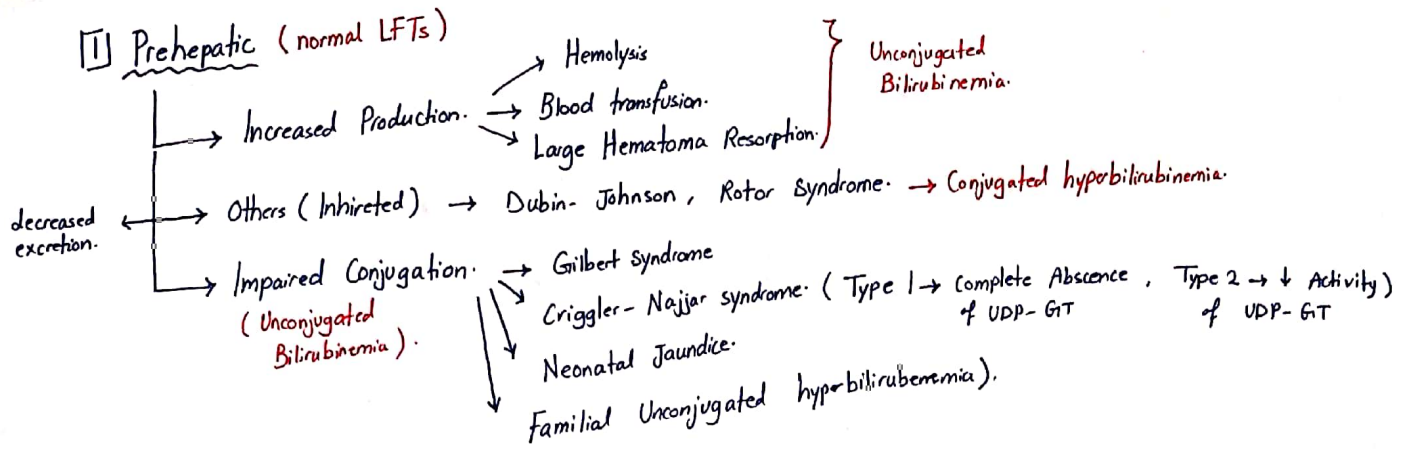 1 Prehepatic (normal LFTs)
Hemolysis
Increased Production. → Blood transfusion.
Large Hematoma Resorption.
Unconjugated
Bilirubinemia.
decreased
excretion.
Others (Inhireted) → Dubin-Johnson, Rotor Syndrome. → Conjugated hyperbilirubinemia.
Impaired Conjugation. → Gilbert Syndrome
(Unconjugated
Bilirubinemia).
Criggler-Najjar syndrome. (Type 1 → Complete Abscence, Type 2 → ↓ Activity)
of UDP-GT of UDP-GT
Neonatal Jaundice.
Familial Unconjugated hyperbilirubenemia).